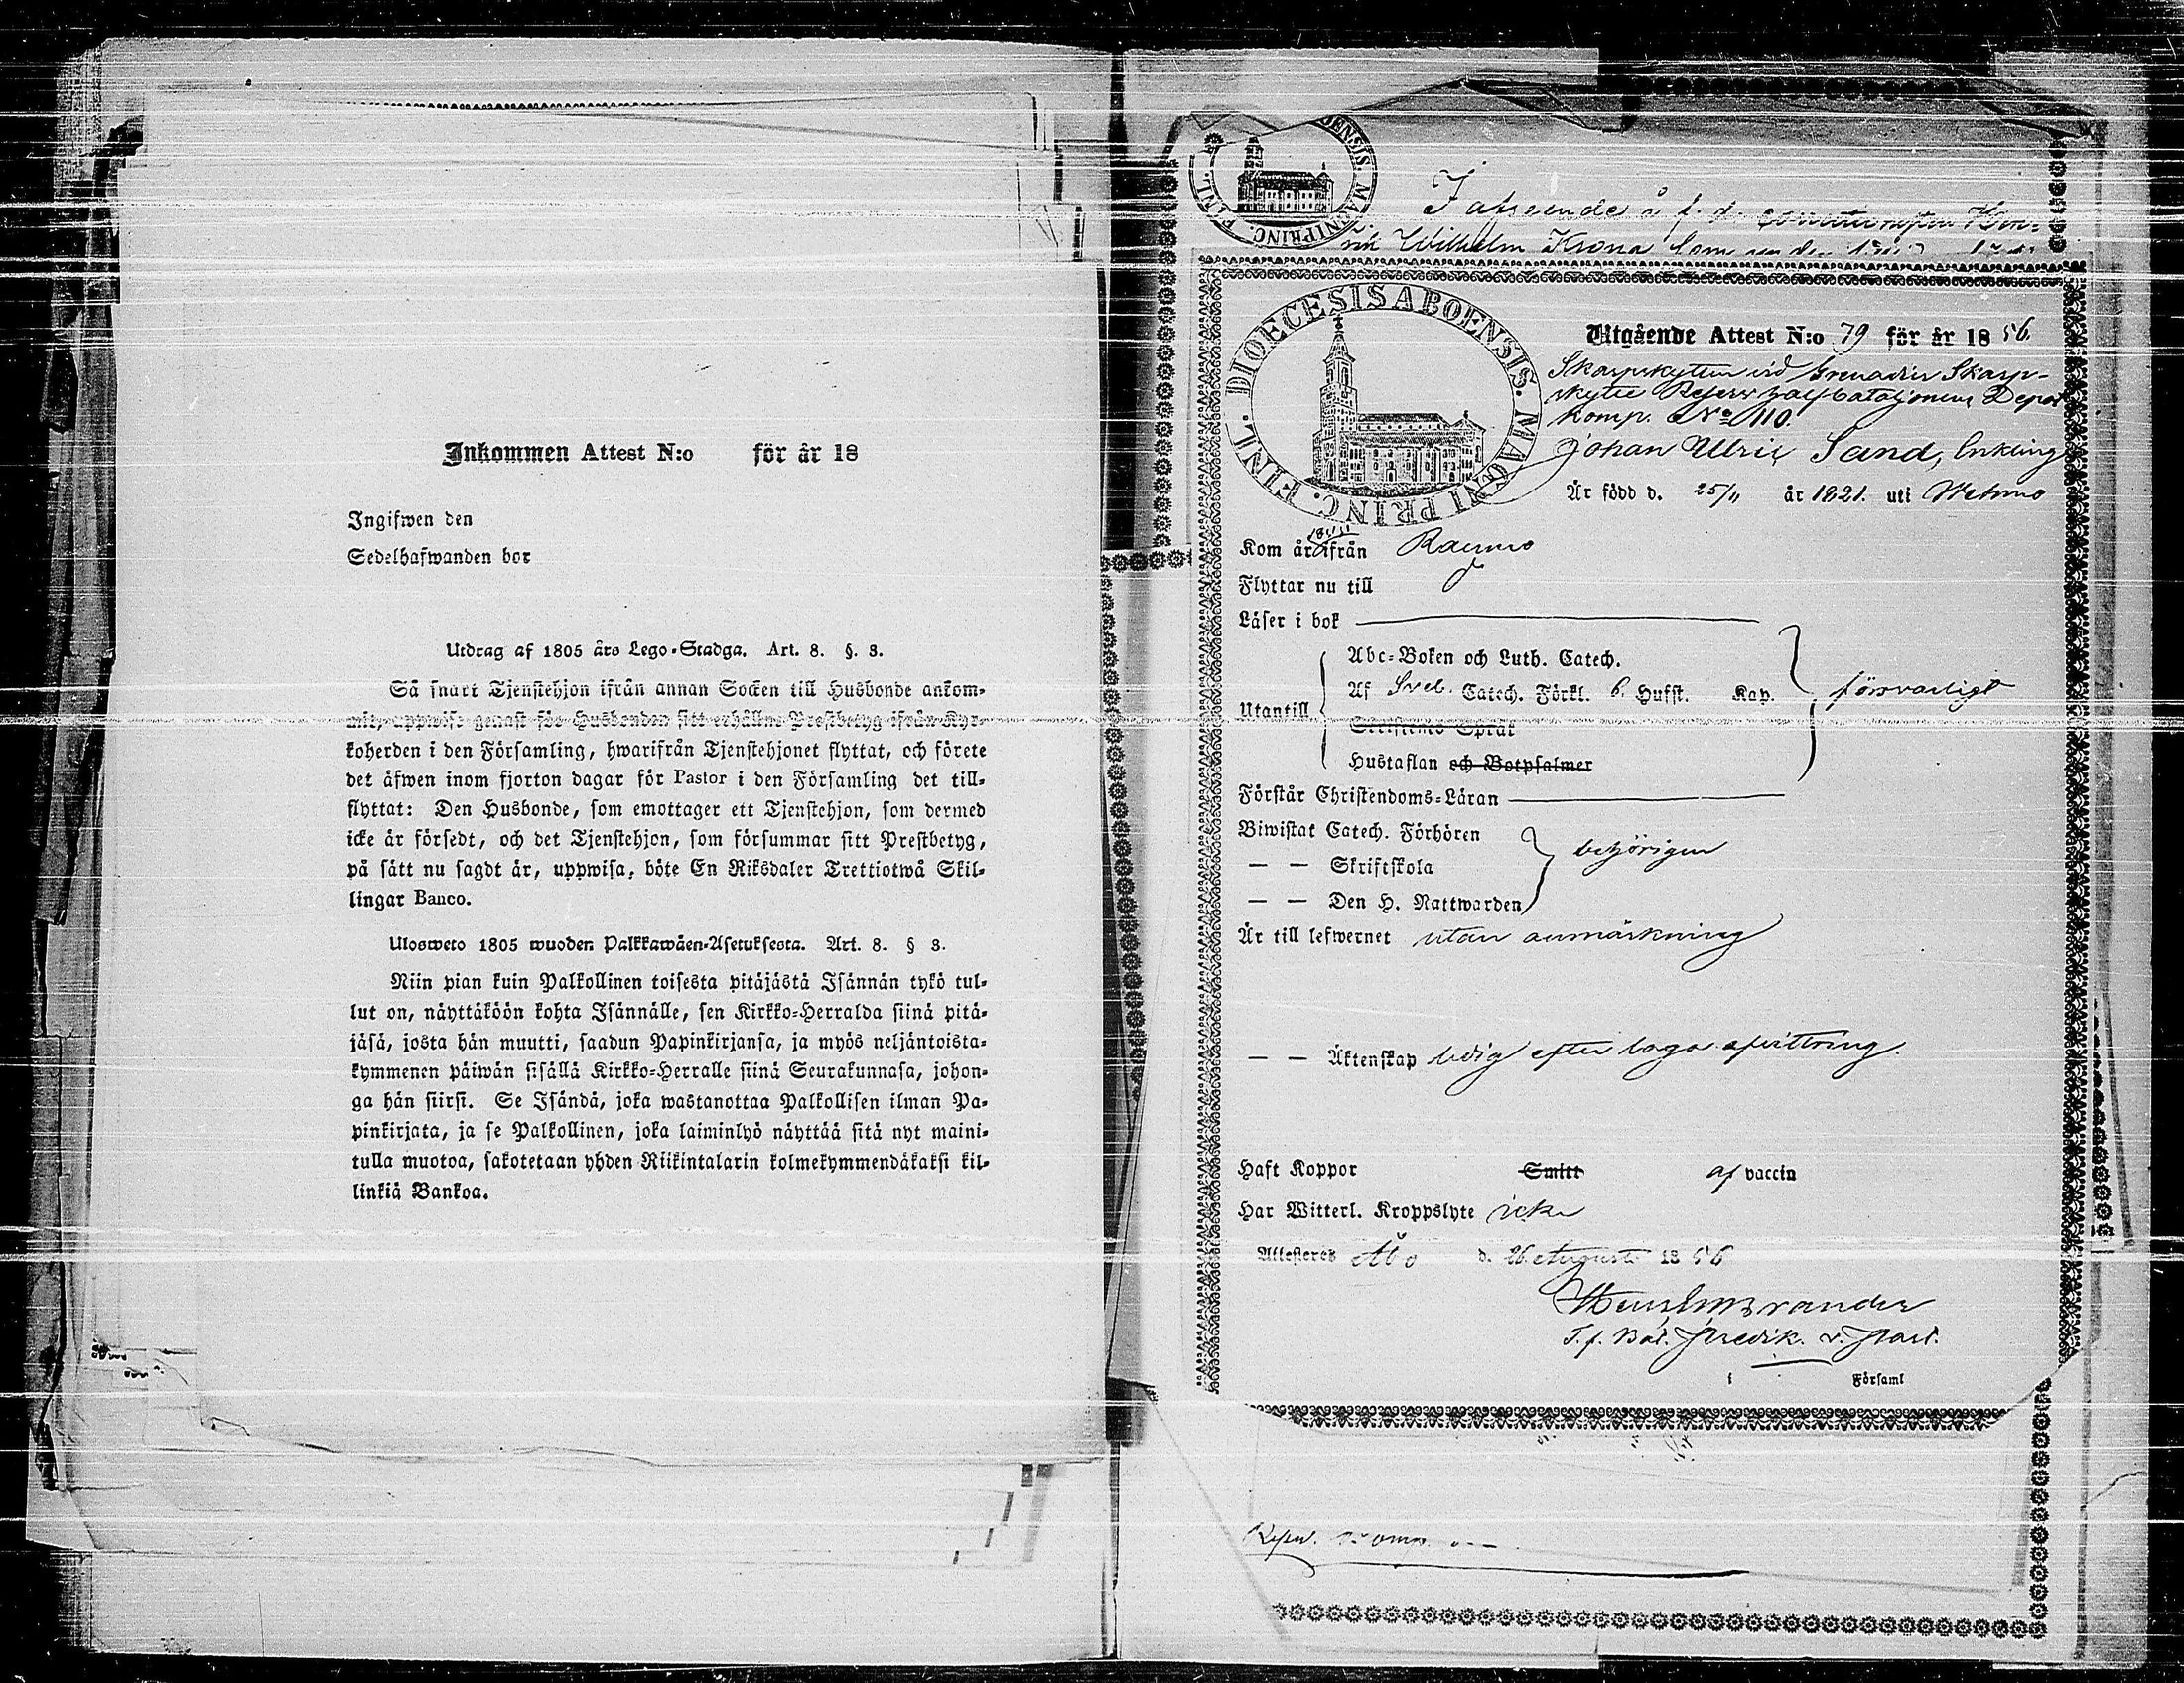 Inkommen Attest N:o för år 18
Ingifwen den
Sedelhafwanden bor
Utdrag af 1805 års Lego-Stadga. Art. 8. §. 3.
Så snart Tjenstehjon ifrån annan Socken till Husbonde ankom-
mit, uppwise genast för Husbonden sitt erhållne Prestbetyg ifrån Kyr-
koherden i den Församling, hwarifrån Tjenstehjonet flyttat, och förete
det äfwen inom fjorton dagar för Pastor i den Församling det till-
flyttat: Den Husbonde, som emottager ett Tjenstehjon, som dermed
icke är försedt, och det Tjenstehjon, som försummar sitt Prestbetyg,
på sätt nu sagdt är, uppwisa, böte En Riksdaler Trettiotwå Skil-
lingar Banco.
Ulosweto 1805 wuoden Palkkawäen-Asetuksesta. Art. 8. § 3.
Niin pian kuin Palkollinen toisesta pitäjästä Isännän tykö tul-
lut on, näyttäköön kohta Isännälle, sen Kirkko-Herralda siinä pitä-
jäsä, josta hän muutti, saadun Papinkirjansa, ja myös neljäntoista-
kymmenen päiwän sisällä Kirkko-Herralle siinä Seurakunnasa, johon-
ga hän siirsi. Se Isändä, joka wastanottaa Palkollisen ilman Pa-
pinkirjata, ja se Palkollinen, joka laiminlyö näyttää sitä nyt maini-
tulla muotoa, sakotetaan yhden Riikintalarin kolmekymmendäkaksi kil-
linkiä Bankoa.
å f. d.
Wilhelm Krona som
DIOECESIS ABOENSIS. MAGNI PRINC. FINL.
Utgående Attest N:o 79 för år 1856.
Skarpskytten vid Grenadier Skarp-
skytte Reserv halfbataljonens Depot
Komp. No 110.
Johan Ulric Sand, Enkling
Är född d. 25/11 år 1821. uti Wehmo
Kom år ifrån Raumo
Flyttar nu till
Läser i bok
Abc-Boken och Luth. Catech.
Utantill Af Sveb. Catech. Förkl. 6. Husst. Kap. försvarligt
Skriftenes Språk
Hustaflan och Botpsalmer
Förstår Christendoms-Läran
Biwistat Catech. Förhören
— — Skriftskola behörigen
— — Den H. Nattwarden
Är till lefwernet utan anmärkning
— — Äktenskap ledig efter laga afvittring.
Haft Koppor Smitt af vaccin
Har Witterl. Kroppslyte icke
Attesteras Åbo d. 26 Augusti 1856
T. f. Bat. Predik. v. Past.
i Församl